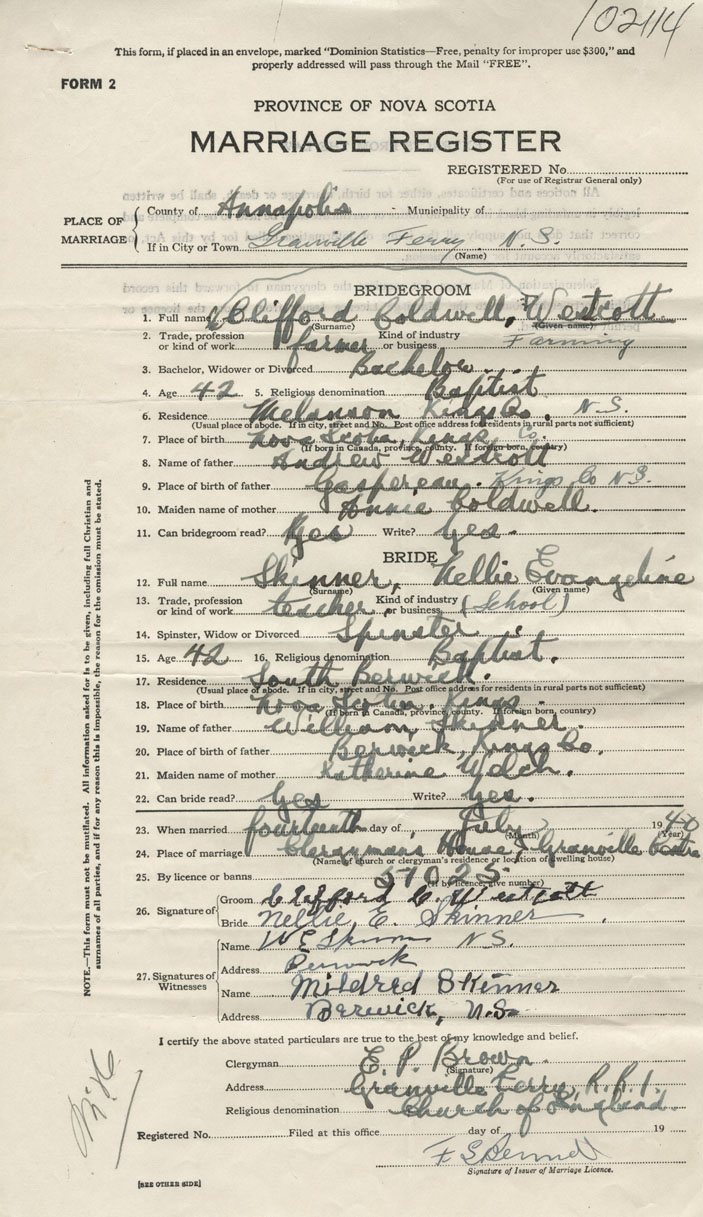 102114
This form, if placed in an envelope, marked "Dominion Statistics—Free, penalty for improper use $300," and
properly addressed will pass through the Mail "FREE".
FORM 2
PROVINCE OF NOVA SCOTIA
MARRIAGE REGISTER
REGISTERED No.
(For use of Registrar General only)
PLACE OF MARRIAGE
County of Annapolis Municipality of
If in City or Town Granville Ferry N.S.
(Name)
BRIDEGROOM
1. Full name Clifford Coldwell, Westcott
(Surname) (Given name)
2. Trade, profession or kind of work farmer Kind of industry or business Farming
3. Bachelor, Widower or Divorced Bachelor
4. Age 42 5. Religious denomination Baptist
6. Residence Melanson Kings Co. N.S.
(Usual place of abode. If in city, street and No. Post office address for residents in rural parts not sufficient)
7. Place of birth Nova Scotia, Kings Co.
(If born in Canada, province, county. If foreign born, country)
8. Name of father Andrew Westcott
9. Place of birth of father Gaspereau. Kings Co N.S.
10. Maiden name of mother Annie Coldwell.
11. Can bridegroom read? Yes Write? Yes.
BRIDE
12. Full name Skinner, Nellie Evangeline
(Surname) (Given name)
13. Trade, profession or kind of work teacher Kind of industry or business (School)
14. Spinster, Widow or Divorced Spinster.
15. Age 42 16. Religious denomination Baptist.
17. Residence South Berwick.
(Usual place of abode. If in city, street and No. Post office address for residents in rural parts not sufficient)
18. Place of birth Nova Scotia. Kings.
(If born in Canada, province, county. If foreign born, country)
19. Name of father William Skinner.
20. Place of birth of father Berwick, Kings Co.
21. Maiden name of mother Katherine Welch.
22. Can bride read? Yes Write? Yes.
23. When married fourteenth day of July 1940
(Month) (Year)
24. Place of marriage Clergyman's House, Granville Centre
(Name of church or clergyman's residence or location of dwelling house)
25. By licence or banns 57025
(If by licence, give number)
26. Signature of Groom Clifford C. Westcott
Bride Nellie E. Skinner
27. Signatures of Witnesses
Name W E Skinner N.S.
Address Berwick
Name Mildred Skinner
Address Berwick, N.S.
I certify the above stated particulars are true to the best of my knowledge and belief.
Clergyman E. P. Brown.
(Signature)
Address Granville Ferry, R.R.1.
Religious denomination Church of England
Registered No. Filed at this office day of 19
Signature of Issuer of Marriage Licence.
[SEE OTHER SIDE]
NOTE.—This form must not be mutilated. All information asked for is to be given, including full Christian and
surnames of all parties, and if for any reason this is impossible, the reason for the omission must be stated.